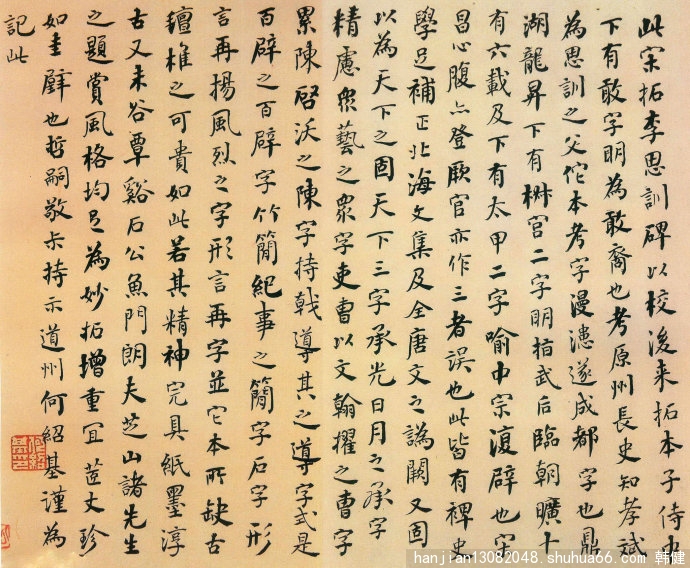 此宋拓李思訓碑以校後来拓本子侍中
下有敢字明為敢裔也考原州長史知孝斌
為思訓之父佗本考字漫漶遂成都字也鼎
湖龍昇下有椒宫二字明指武后臨朝曠十
有六載及下有太甲二字喻中宗復辟也安
昌心腹亦登厥官亦作三者誤也此皆有裨史
學足補正北海文集及全唐文之譌闕又固
以為天下之固天下三字承光日月之承字
精慮衆藝之衆字吏曹以文翰擢之曹字
累陳啓沃之陳字持戟導其之導字式是
百辟之百辟字竹簡紀事之簡字石字形
言再揚風烈之字形言再字並它本所缺古
氊椎之可貴如此若其精神完具紙墨淳
古又未谷覃谿石公魚門朗夫芝山諸先生
之題賞風格均足為妙拓增重宜莅丈珍
如圭璧也哲嗣敬持示道州何紹基謹為
記此
hanjian13082048.shuhua66.com 韩健